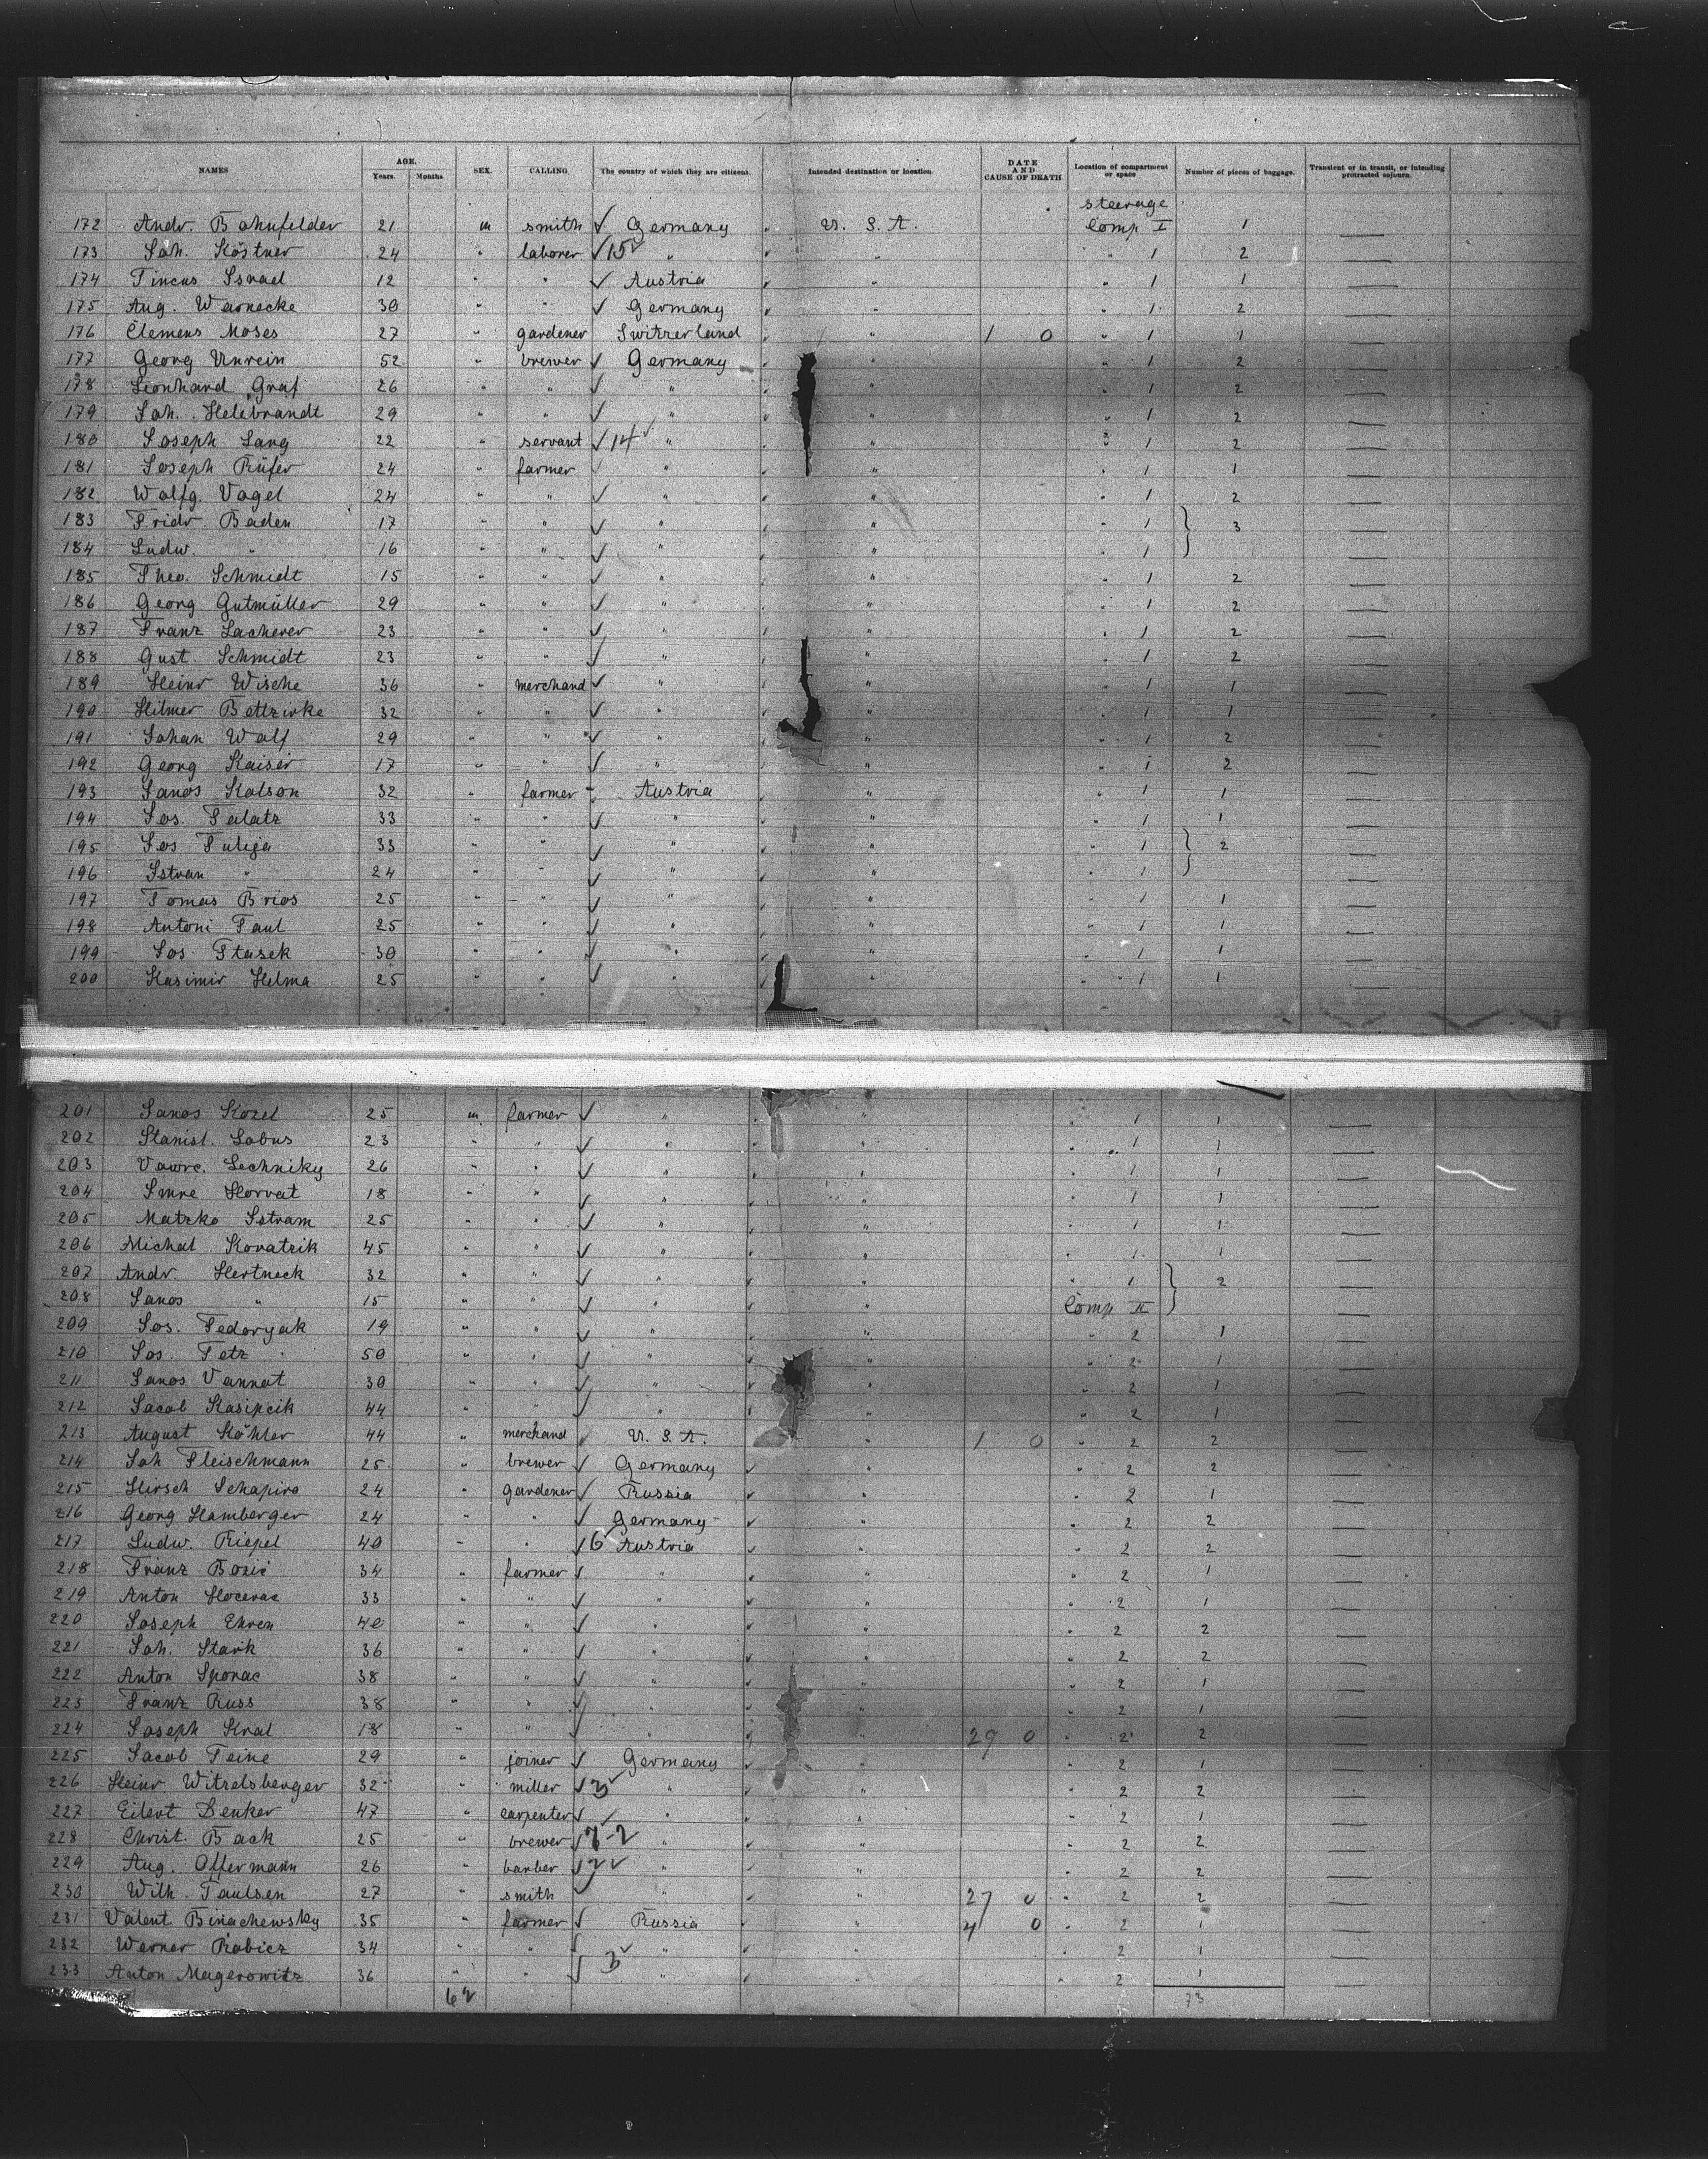 NAMES AGE. Years. Months. SEX. CALLING The country of which they are citizens. Intended destination or location. DATE AND CAUSE OF DEATH Location of compartment or space Number of pieces of baggage. Transient or in transit, or intending protracted sojourn.
steerage
172 Andr. Bahnfelder 21 m smith ✓ Germany U. S. A. Comp I 1 —
173 Joh. Köstner 24 " laborer ✓ 15 " " " 1 2 —
174 Pincus Israel 12 " " ✓ Austria " " 1 1 —
175 Aug. Warnecke 30 " " ✓ Germany " " 1 2 —
176 Clemens Moses 27 " gardener Switzerland " 1 0 " 1 1 —
177 Georg Unrein 52 " brewer ✓ Germany " " 1 2 —
178 Leonhard Graf 26 " " ✓ " " " 1 2 —
179 Joh. Helebrandt 29 " " ✓ " " " 1 2 —
180 Joseph Lang 22 " servant ✓ 14 " " " 1 2 —
181 Joseph Rüfer 24 " farmer ✓ " " " 1 1 —
182 Wolfg. Vogel 24 " " ✓ " " " 1 2 —
183 Fridr. Baden 17 " " ✓ " " " 1 } 3 —
184 Ludw. " 16 " " ✓ " " " 1 —
185 Theo. Schmidt 15 " " ✓ " " " 1 2 —
186 Georg Gutmüller 29 " " ✓ " " " 1 2 —
187 Franz Lacherer 23 " " ✓ " " " 1 2 —
188 Gust. Schmidt 23 " " ✓ " " " 1 2 —
189 Heinr Wische 36 " merchand ✓ " " " 1 1 —
190 Hilmer Bettzirke 32 " " ✓ " " " 1 1 —
191 Johan Wolf 29 " " ✓ " " " 1 2 —
192 Georg Kaiser 17 " " ✓ " " " 1 2 —
193 Janos Kolson 32 " farmer Austria " " 1 1 —
194 Jos. Palatz 33 " " ✓ " " " 1 1 —
195 Jos Puliga 33 " " ✓ " " " 1 } 2 —
196 Istvan " 24 " " ✓ " " " 1 —
197 Tomas Brios 25 " " ✓ " " " 1 1 —
198 Antoni Paul 25 " " ✓ " " " 1 1 —
199 Jos. Ptasek 30 " " ✓ " " " 1 1 —
200 Kasimir Helma 25 " " ✓ " " " 1 1 —
201 Janos Kozel 25 m farmer ✓ " " " 1 1 —
202 Stanisl. Lobus 23 " " ✓ " " " 1 1 —
203 Vawrc. Lechniky 26 " " ✓ " " " 1 1 —
204 Imre Horvat 18 " " ✓ " " " 1 1 —
205 Matzko Istvam 25 " " ✓ " " " 1 1 —
206 Michal Kovatzik 45 " " ✓ " " " 1 1 —
207 Andr. Hertneck 32 " " ✓ " " " 1 } 2 —
208 Janos " 15 " " ✓ " " Comp II —
209 Jos. Fedoryak 19 " " ✓ " " " 2 1 —
210 Jos. Petz 50 " " ✓ " " " 2 1 —
211 Janos Vannat 30 " " ✓ " " " 2 1 —
212 Jacob Kasipcik 44 " " ✓ " " " 2 1 —
213 August Köhler 44 " merchand U. S. A. " 1 0 " 2 2 —
214 Joh Fleischmann 25 " brewer ✓ Germany " " 2 2 —
215 Hirsch Schapiro 24 " gardener ✓ Russia " " 2 1 —
216 Georg Hamberger 24 " " ✓ Germany " " 2 2 —
217 Ludw. Riepel 40 " " ✓ 6 Austria " " 2 2 —
218 Franz Bozic 34 " farmer ✓ " " " 2 1 —
219 Anton Hocevac 33 " " ✓ " " " 2 1 —
220 Joseph Ehren 40 " " ✓ " " " 2 2 —
221 Joh. Stark 36 " " ✓ " " " 2 2 —
222 Anton Sporac 38 " " ✓ " " " 2 1 —
223 Franz Russ 38 " " ✓ " " " 2 1 —
224 Joseph Kral 18 " " ✓ " " 29 0 " 2 2 —
225 Jacob Peine 29 " joiner ✓ Germany " " 2 1 —
226 Heinr Witzelsberger 32 " miller ✓ 3 " " " 2 2 —
227 Eilert Denker 47 " carpenter ✓ " " " 2 1 —
228 Christ. Back 25 " brewer ✓ 7-2 " " " 2 2 —
229 Aug. Offermann 26 " barber ✓ " " " 2 2 —
230 Wilh. Paulsen 27 " smith ✓ " " 27 0 " 2 2 —
231 Valent. Binachewsky 35 " farmer ✓ Russia " 4 0 " 2 1 —
232 Werner Rabicz 34 " " " " " 2 1 —
233 Anton Magerowitz 36 " " 3 " " " 2 1 —
62 73